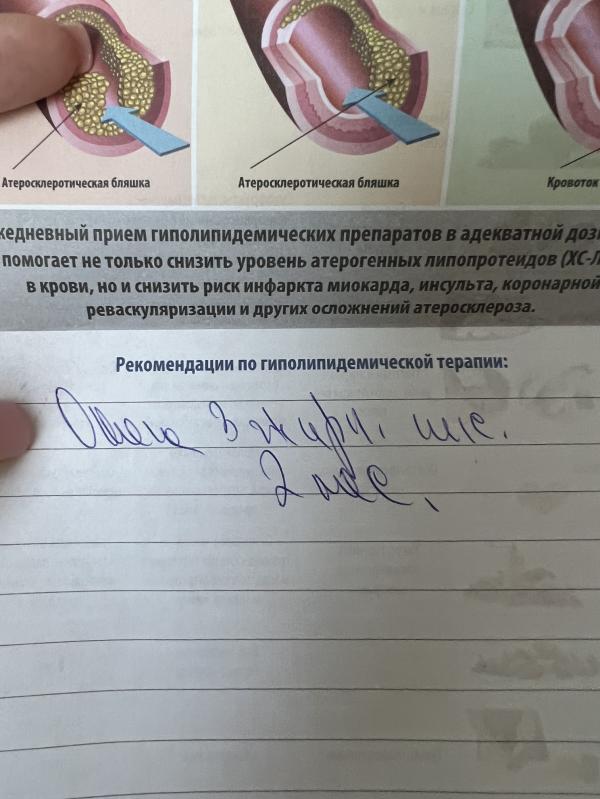 Атеросклеротическая бляшка
Атеросклеротическая бляшка
Кровоток
жедневный прием гиполипидемических препаратов в адекватной доз
помогает не только снизить уровень атерогенных липопротеидов (ХС-Л
в крови, но и снизить риск инфаркта миокарда, инсульта, коронарной
реваскуляризации и других осложнений атеросклероза.
Рекомендации по гиполипидемической терапии:
Омега 3 жирн. к-ты
2 мес.